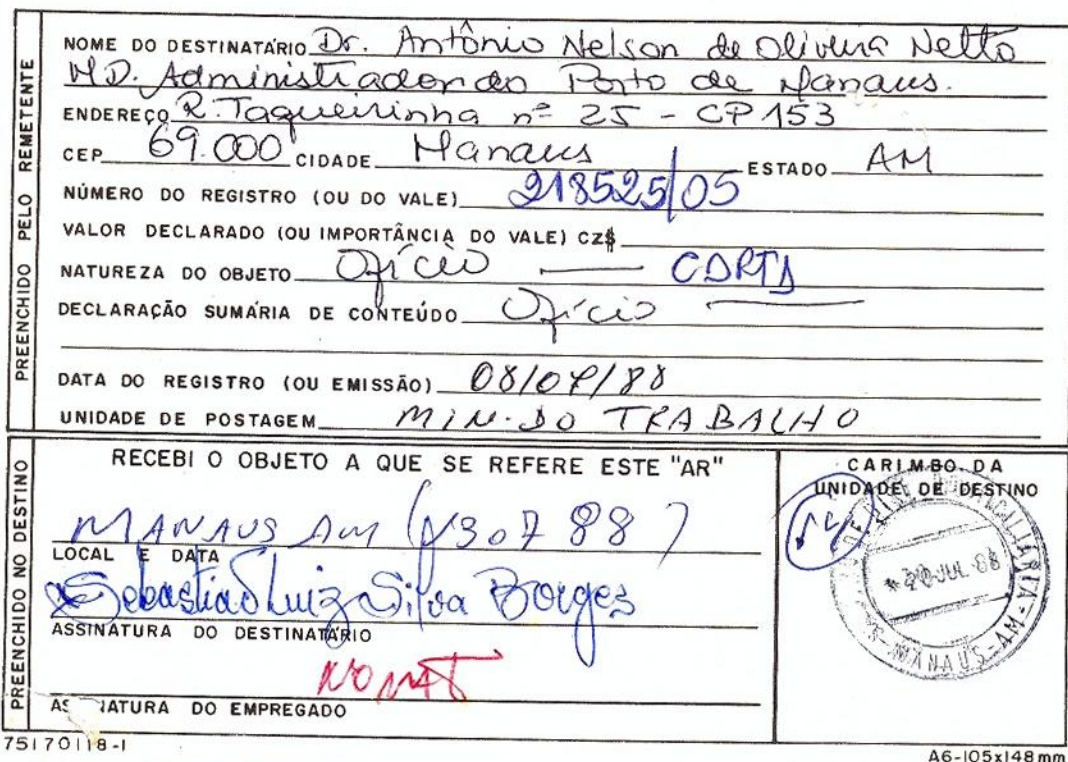 PREENCHIDO PELO REMETENTE
NOME DO DESTINATÁRIO Dr. Antônio Nelson de Oliveira Netto
M.D. Administrador do Porto de Manaus.
ENDEREÇO R. Taqueirinha nº 25 - CP 153
CEP 69.000 CIDADE Manaus ESTADO AM
NÚMERO DO REGISTRO (OU DO VALE) 218525/05
VALOR DECLARADO (OU IMPORTÂNCIA DO VALE) CZ$
NATUREZA DO OBJETO Ofício — CARTA
DECLARAÇÃO SUMÁRIA DE CONTEÚDO Ofício
DATA DO REGISTRO (OU EMISSÃO) 08/07/88
UNIDADE DE POSTAGEM MIN. DO TRABALHO
PREENCHIDO NO DESTINO
RECEBI O OBJETO A QUE SE REFERE ESTE "AR"
MANAUS AM (1307 88)
LOCAL E DATA
Sebastião Luiz Silva Borges
ASSINATURA DO DESTINATÁRIO
ASSINATURA DO EMPREGADO
CARIMBO DA
UNIDADE DE DESTINO
JUL 88
MANAUS-AM
75170118-1
A6-105x148mm